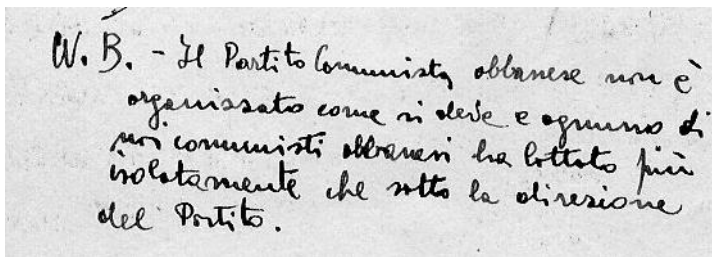 N.B. - Il Partito Comunista albanese non è
organizzato come si deve e ognuno di
noi comunisti albanesi ha lottato più
isolatamente che sotto la direzione
del Partito.